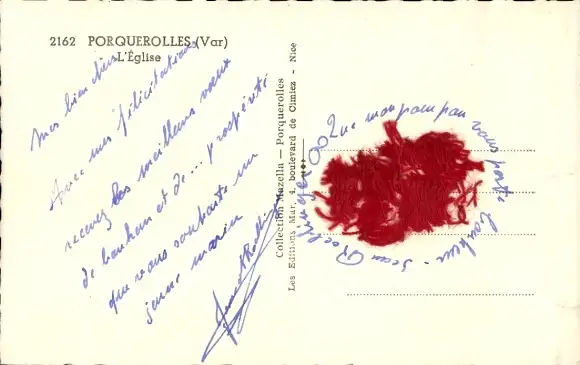 2162 PORQUEROLLES (Var)
L'Église
Mes bien chers
Avec mes félicitations
recevez les meilleurs vœux
de bonheur et de... prospérité
que vous souhaite un
jeune marin
Collection Mazella — Porquerolles
Les Editions Mar, 4, boulevard de Cimiez - Nice
Que mon pompon vous porte bonheur - Jean